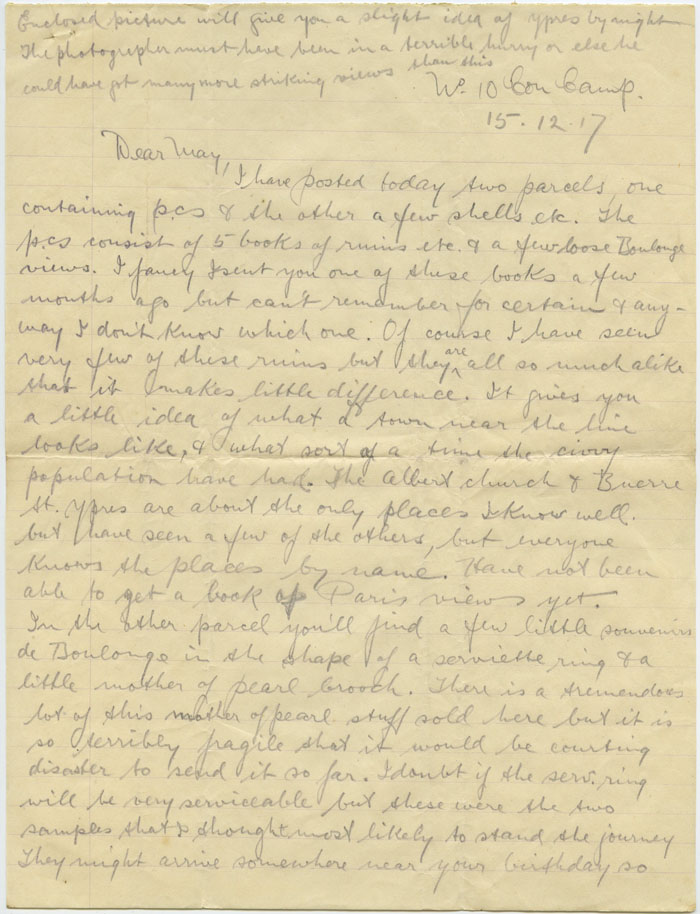 Enclosed picture will give you a slight idea of Ypres by night
The photographer must have been in a terrible hurry or else he
could have got many more striking views than this
No. 10 Con Camp.
15.12.17
Dear May,
I have posted today two parcels, one
containing p.cs & the other a few shells etc. The
p.cs consist of 5 books of ruins etc. & a few loose Boulonge
views. I fancy I sent you one of these books a few
months ago but can't remember for certain & any-
way I don't know which one. Of course I have seen
very few of these ruins but they are all so much alike
that it makes little difference. It gives you
a little idea of what a town near the line
looks like, & what sort of a time the civvy
population have had. The Albert church & Buerre
St. Ypres are about the only places I know well.
but have seen a few of the others, but everyone
knows the places by name. Have not been
able to get a book of Paris views yet.
In the other parcel you'll find a few little souvenirs
de Boulonge in the shape of a serviette ring & a
little mother of pearl brooch. There is a tremendous
lot of this mother of pearl stuff sold here but it is
so terribly fragile that it would be courting
disaster to send it so far. I doubt if the serv. ring
will be very serviceable but these were the two
samples that I thought most likely to stand the journey
They might arrive somewhere near your birthday so